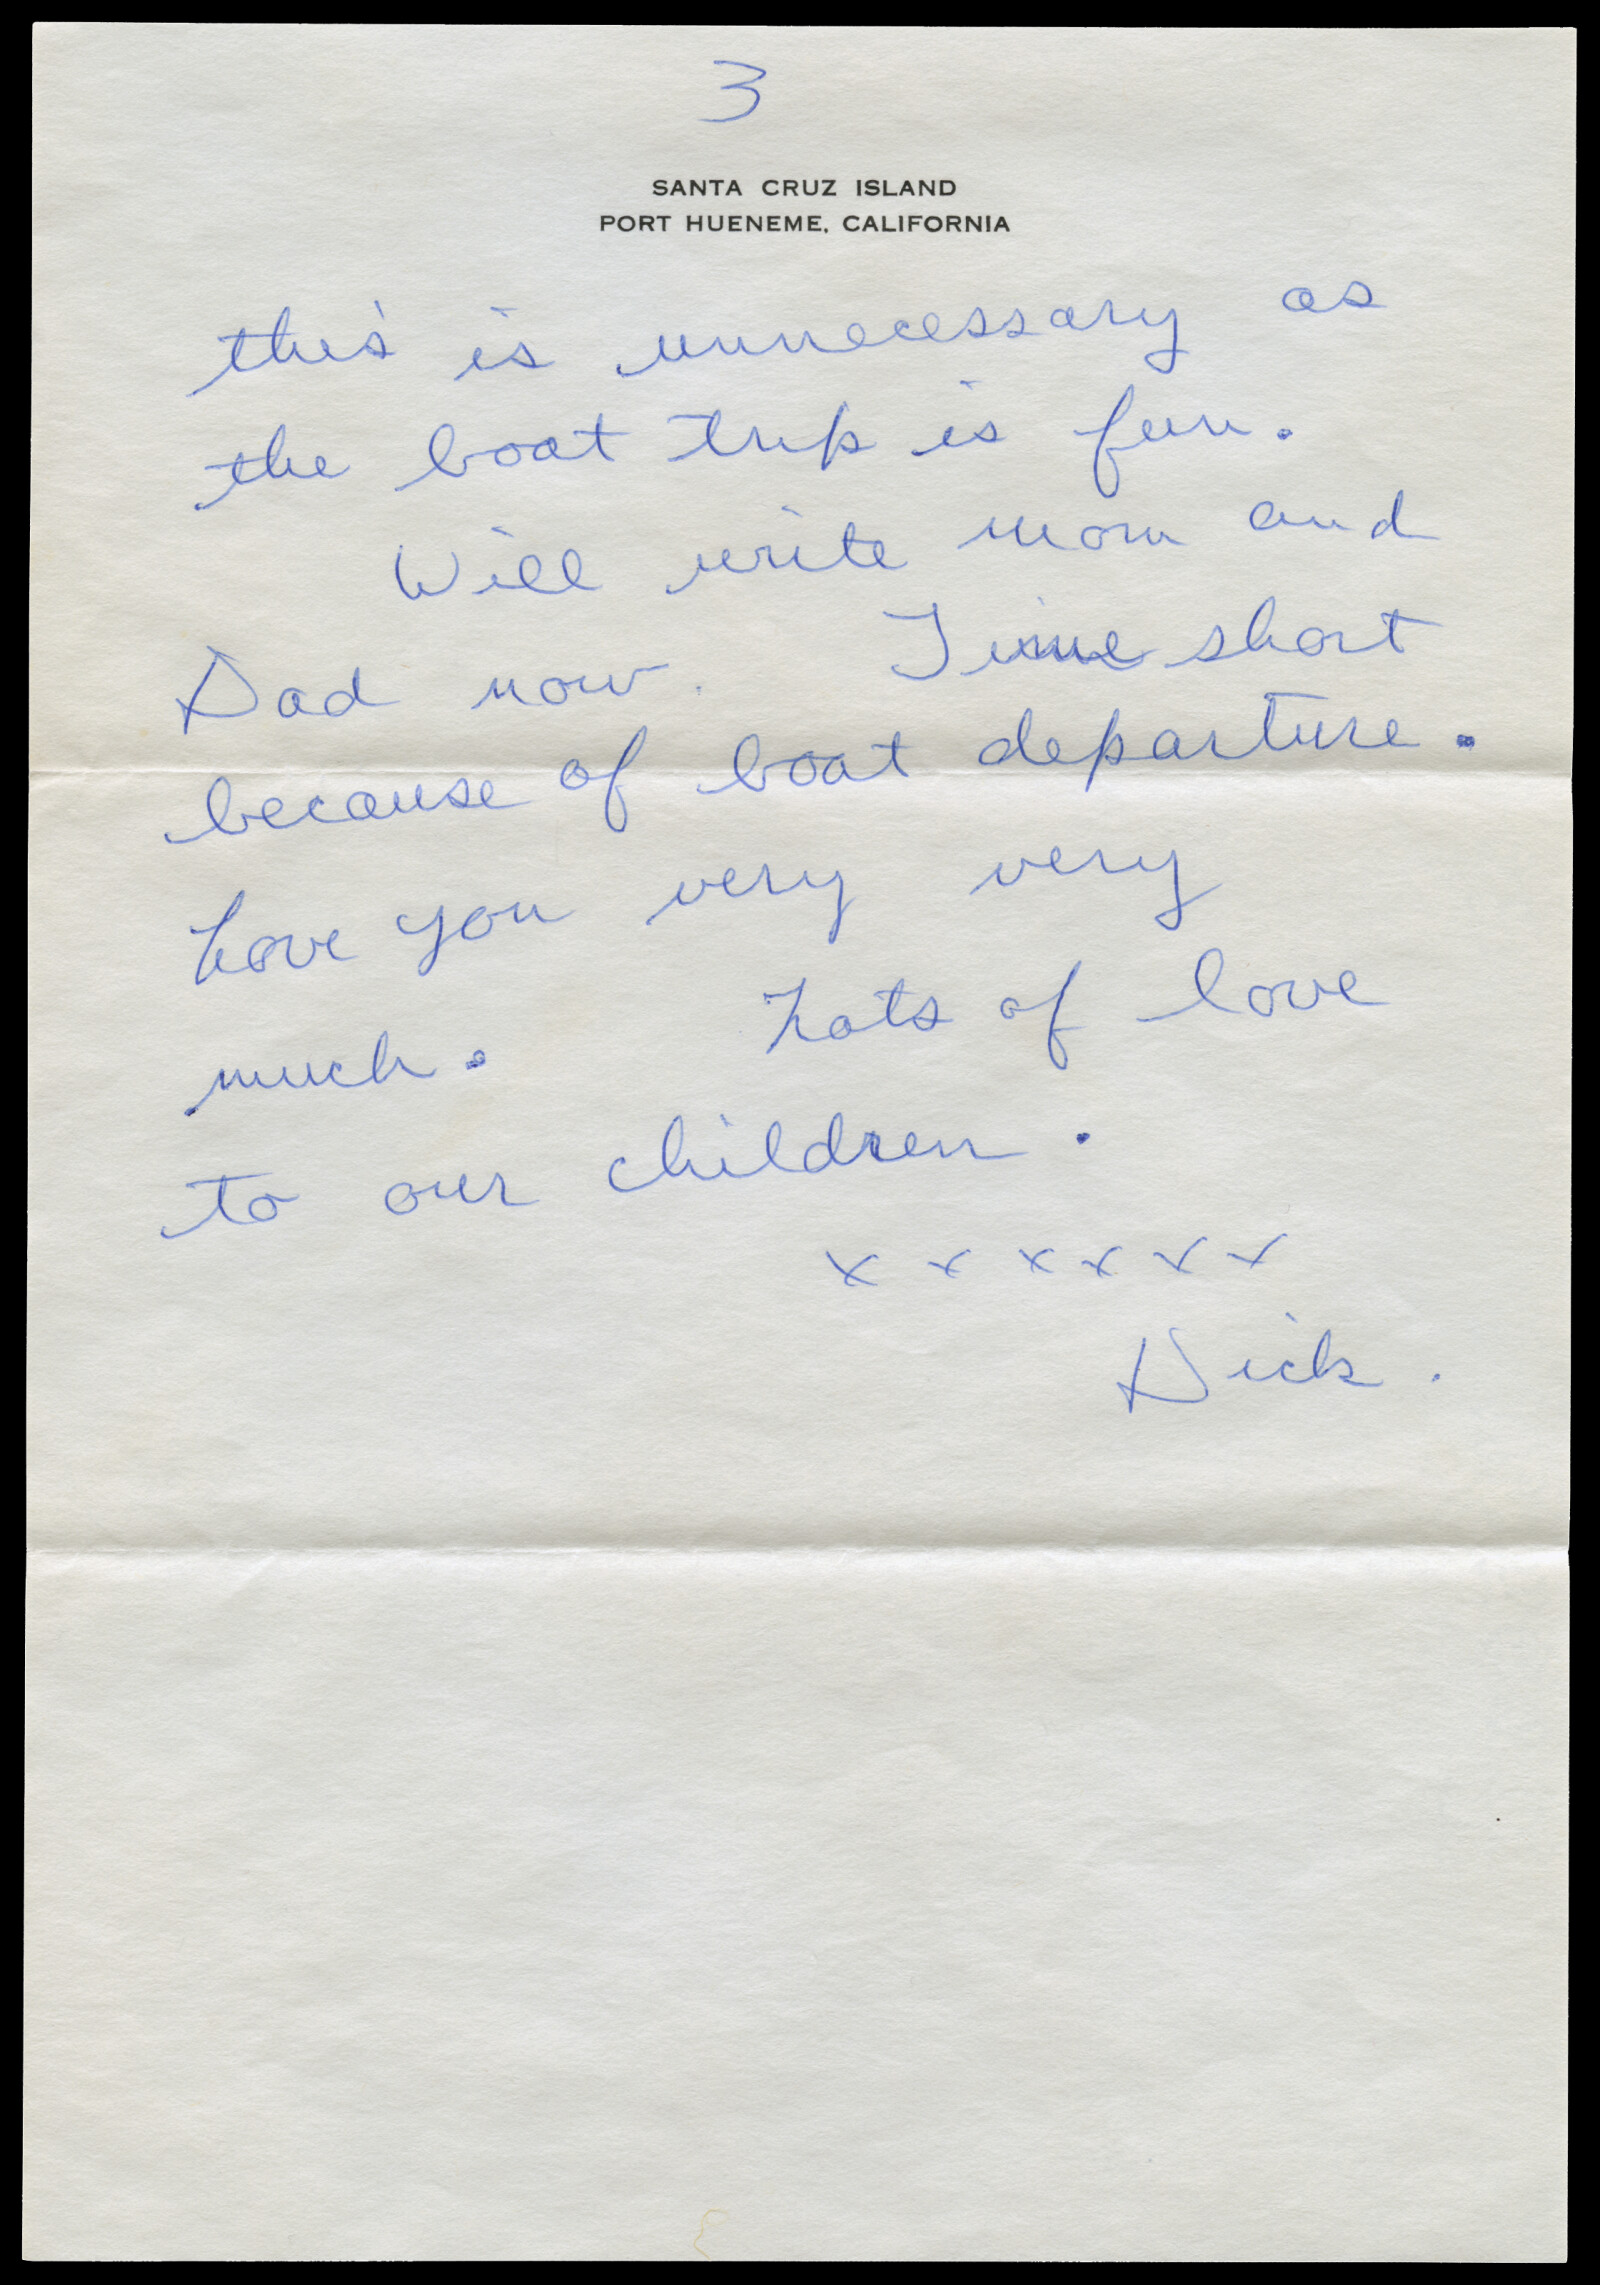 3
SANTA CRUZ ISLAND
PORT HUENEME, CALIFORNIA
this is unnecessary as
the boat trip is fun.
Will write mom and
Dad now. Time short
because of boat departure.
Love you very very
much. Lots of love
to our children.
x x x x x x
Dick.